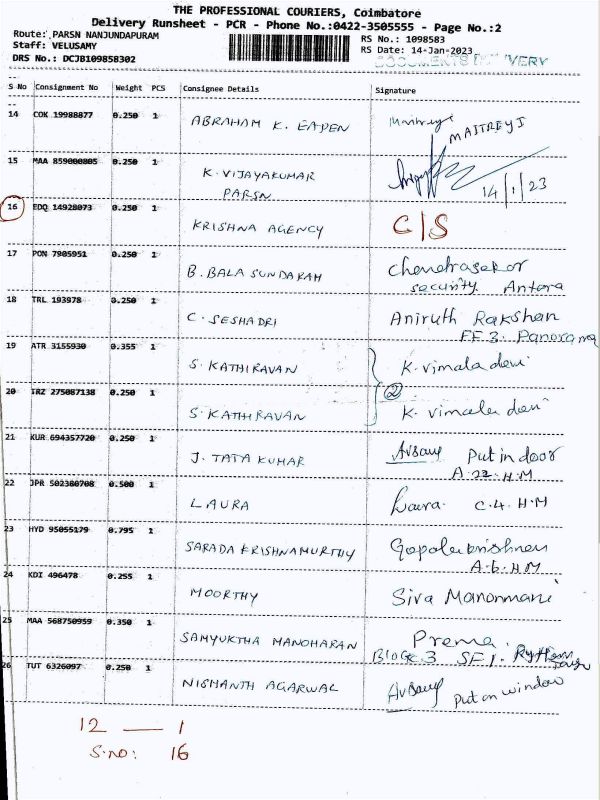 THE PROFESSIONAL COURIERS, Coimbatore
Delivery Runsheet - PCR - Phone No.:0422-3505555 - Page No.:2
Route: PARSN NANJUNDAPURAM
Staff: VELUSAMY
DRS No.: DCJB109858302
RS No.: 1098583
RS Date: 14-Jan-2023
DOCUMENTS DELIVERY
S No Consignment No Weight PCS Consignee Details Signature
14 COK 19988877 0.250 1 ABRAHAM K. EAPEN Maitreyi MAITREYI
15 MAA 859000805 0.250 1 K. VIJAYAKUMAR
PARSN 14/1/23
16 EDQ 14928073 0.250 1 KRISHNA AGENCY C/S
17 PON 7905951 0.250 1 B. BALA SUNDARAM Chandrasekar
security Antara
18 TRL 193978 0.250 1 C. SESHADRI Aniruth Rakshan
FF 3 Panorama
19 ATR 3155930 0.355 1 S. KATHIRAVAN K. vimala devi
②
20 TRZ 275087138 0.250 1 S. KATHIRAVAN K. vimala devi
21 KUR 694357720 0.250 1 J. TATA KUMAR Put in door
A.22. H.M
22 JPR 502380708 0.500 1 LAURA Laura. C.4. H.M
23 HYD 95055179 0.795 1 SARADA KRISHNAMURTHY Gopalakrishnan
A.6. H.M
24 KDI 496478 0.255 1 MOORTHY Siva Manonmani
25 MAA 568750959 0.350 1 SAMYUKTHA MANOHARAN Prema.
Block 3 SF1.
26 TUT 6326097 0.250 1 NISHANTH AGARWAL Put on window
12 — 1
S.NO: 16